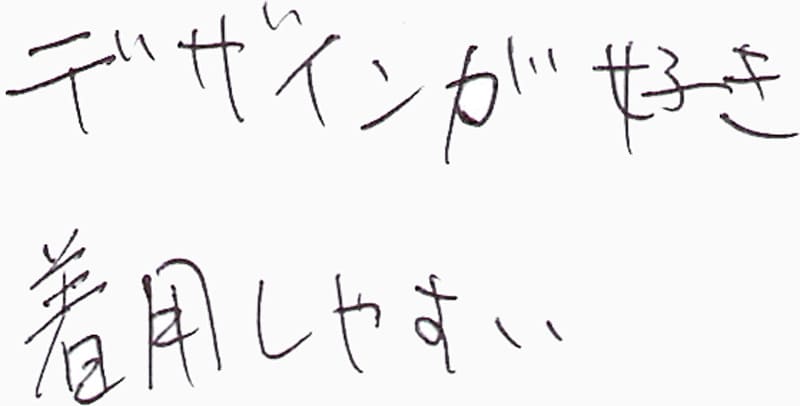 デザインが好き
着用しやすい